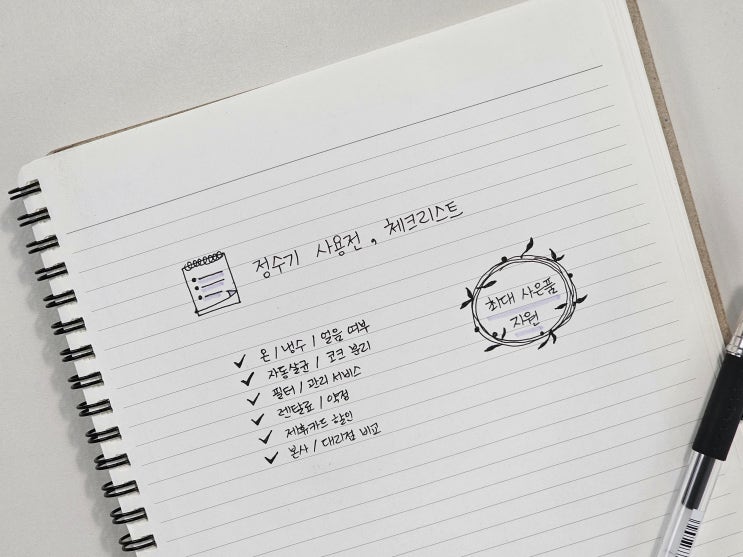 정수기 사용전, 체크리스트
최대 사은품
지원
온/냉수/얼음 여부
자동살균/코크 분리
필터/관리 서비스
렌탈료/약정
제휴카드 할인
본사/대리점 비교